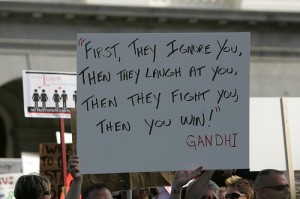 "FIRST, THEY IGNORE YOU,
THEN THEY LAUGH AT YOU,
THEN THEY FIGHT YOU,
THEN YOU WIN!"
GANDHI